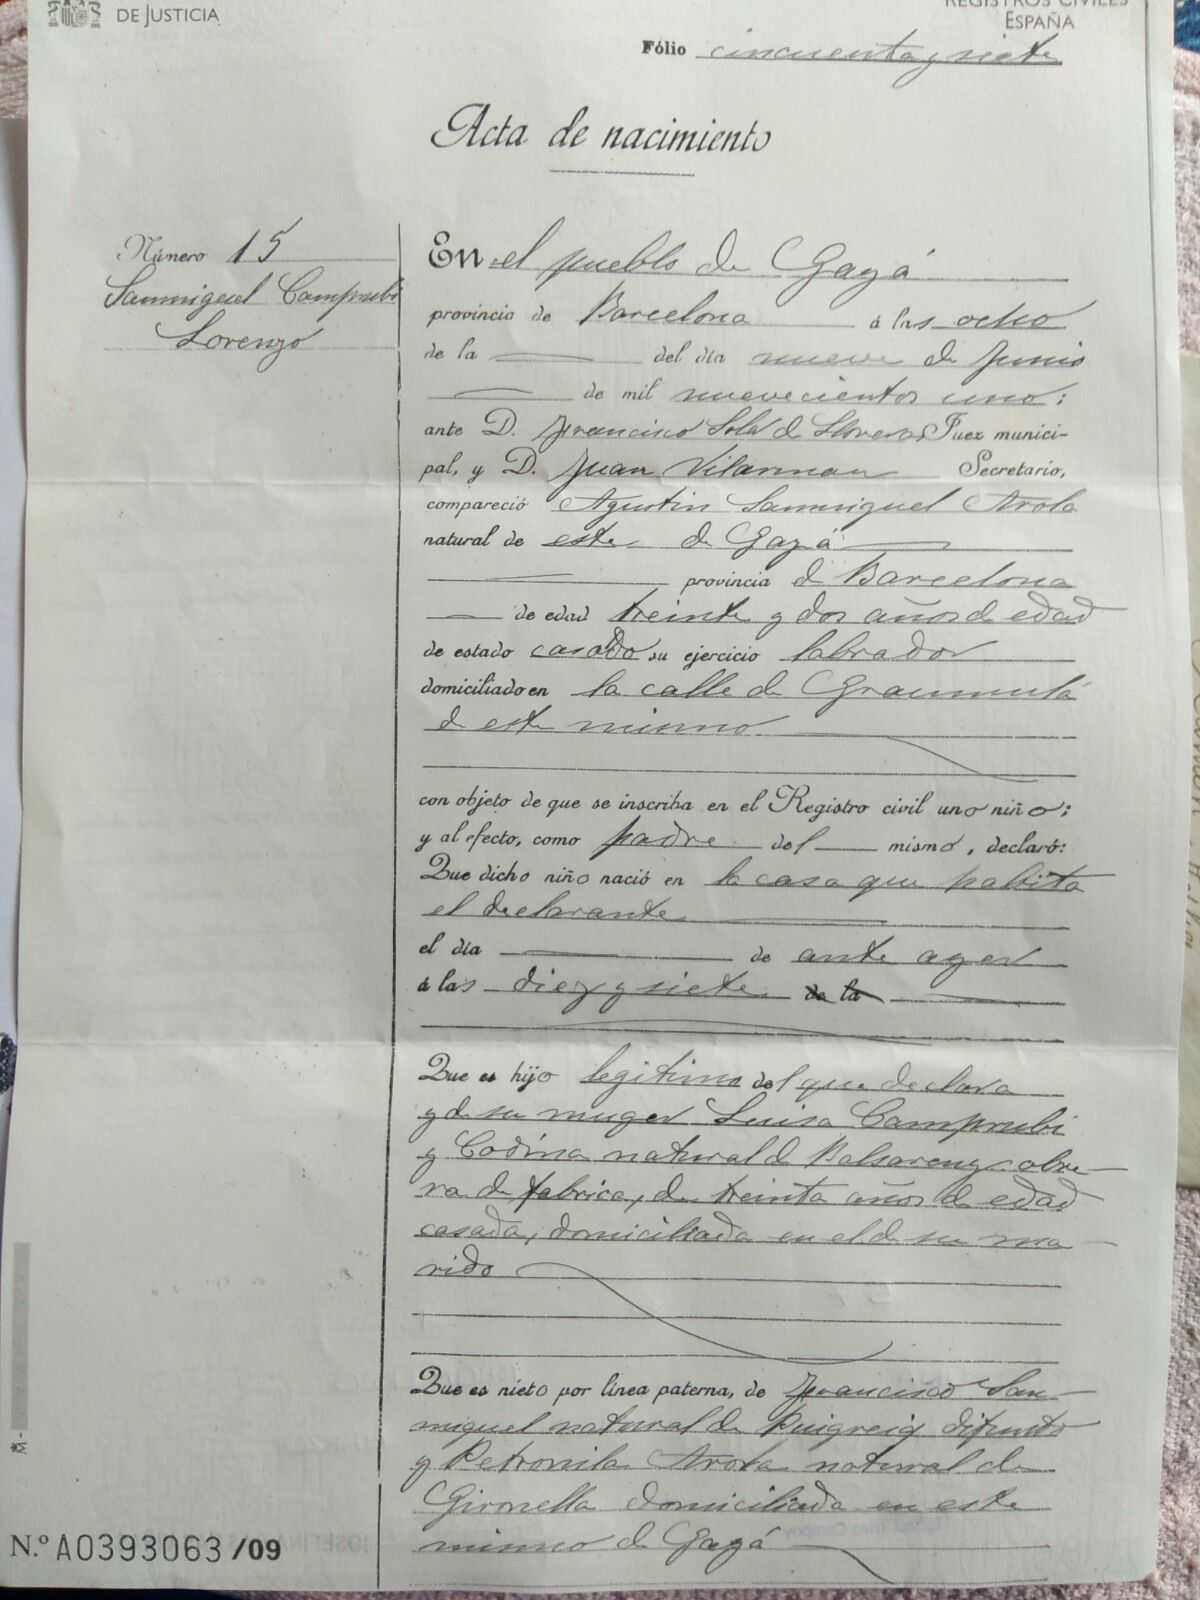 DE JUSTICIA
REGISTROS CIVILES
ESPAÑA
Fólio cincuenta y siete
Acta de nacimiento
Número 15
Sanmiguel Camprubi
Lorenzo
En el pueblo de Gayá
provincia de Barcelona á las ocho
de la del día nueve de Junio
de mil nuevecientos uno;
ante D. Francisco Solá de Juez munici-
pal, y D. Juan Vilanmau Secretario,
compareció Agustin Sanmiguel Arola
natural de este de Gayá
provincia d Barcelona
de edad treinta y dos años d edad
de estado casado su ejercicio labrador
domiciliado en la calle d
d este mismo
con objeto de que se inscriba en el Registro civil uno niño;
y al efecto, como padre del mismo, declaró:
Que dicho niño nació en la casa que habita
el declarante
el día de ante ayer
á las diez y siete de la
Que es hijo legitimo del que declara
y d su muger Luisa Camprubi
y Codina natural d Balsareny obre-
ra d fabrica, de treinta años d edad
casada, domiciliada en el d su ma-
rido
Que es nieto por línea paterna, de Francisco San-
miguel natural de Puigreig difunto
y Petronila Arola natural de
Gironella domiciliada en este
mismo d Gayá
N.º A0393063/09